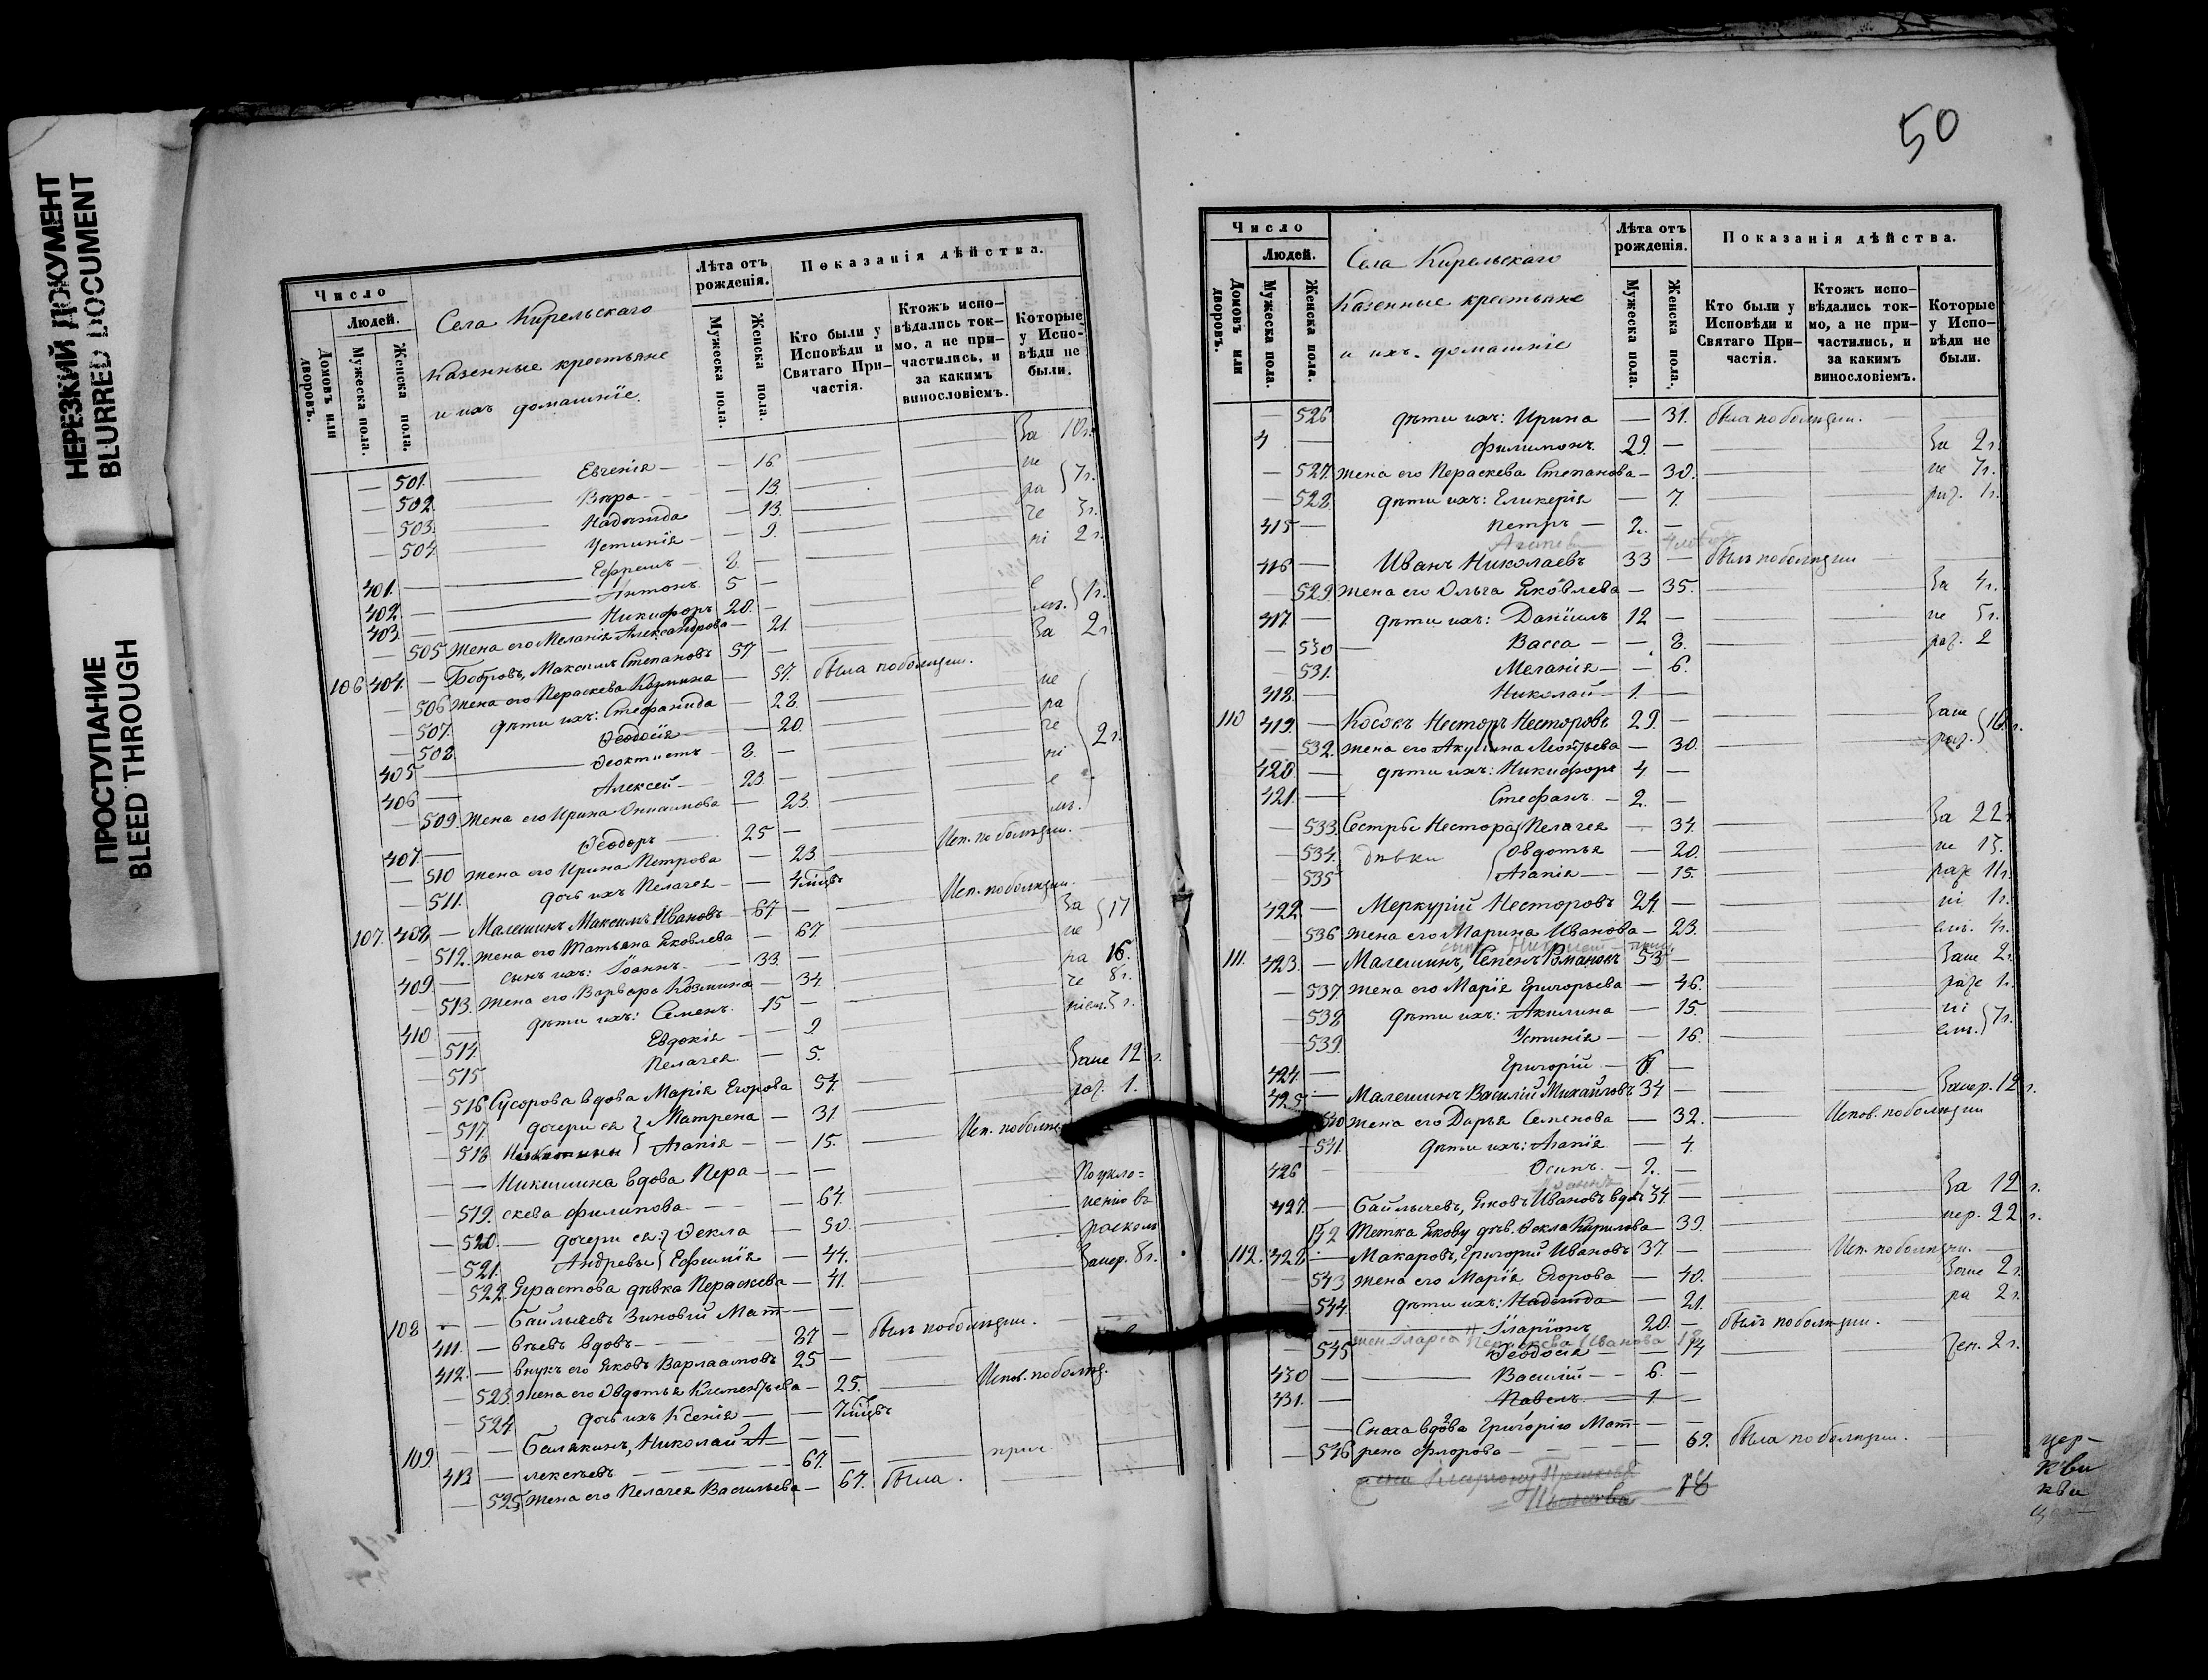 НЕРЕЗКИЙ ДОКУМЕНТ
BLURRED DOCUMENT
ПРОСТУПАНИЕ
BLEED THROUGH
Число
Людей.
Домовъ или дворовъ.
Мужеска пола.
Женска пола.
Села Кирельскаго
Казенные крестьяне
и ихъ домашніе.
Лѣта отъ рожденія.
Мужеска пола.
Женска пола.
Показанія дѣйства.
Кто были у Исповѣди и Святаго Причастія.
Ктожъ исповѣдались токмо, а не причастились, и за какимъ винословіемъ.
Которые у Исповѣди не были.
— 501. — Евгенія — — 16 За 10 г.
— 502. — Вѣра — — 13. не
— 503. — Надежда — 13. ра 7 г.
— 504. — Устинія — — 9. че 3 г.
401. — Ефремъ — 8. — ні 2 г.
402. — Антонъ. 5 —
403. — Никифоръ 20. — е
— 505 жена его Меланія Александрова — 21. мъ. 1 г.
106 404. — Бобровъ, Максимъ Степановъ 57 — За 2 г.
— 506 жена его Пераскева Козмина — 57. была по болѣзни.
— 507. дѣти ихъ: Стефанида — 28. не
— 508. Ѳеодосія — 20. ра
405 — Ѳеоктистъ — 8. — че
406 — Алексей — 23. — ні 2 г.
— 509. жена его Ирина — 23. е
407. — Ѳеодоръ 25 — мъ.
— 510 жена его Ирина Петрова — 23 Исп. по болѣзни.
— 511. дочь ихъ Пелагея — — 4 мѣсцъ
107. 408. — Малешинъ Максимъ Ивановъ 67. — Исп. по болѣзни.
— 512. жена его Татьяна Яковлева — 67. За 17
409 — сынъ ихъ: Іоаннъ — 33. — не
— 513. жена его Варвара Козмина — 34. ра 16.
410 — дѣти ихъ: Семенъ. 15 — че 8 г.
— 514. Евдокія — — 9 ніем. 3 г.
— 515 Пелагея. — 5.
— 516 Сусорова вдова Марія Егорова 54. Заче 12 г.
— 517. дочери ея Матрена — 31 раз. 1.
— 518 Агапія — — 15. Исп. по
— — Никишина вдова Пера — — —
— 519. скева Филипова — — — 64. По укло=
— 520. — дочери ея: Ѳекла — 50. ненію въ
— 521. Андревы Ефимія — 44. расколъ
— 522. Ерастова дѣвка Пераскева — 41. Занер. 8 г.
108 — — Байлычевъ Зиновій Мат — —
411. — вѣевъ вдовъ — 87 — былъ по болѣзни.
412. — внукъ его Яковъ Варлаамовъ 25 —
— 523. жена его Овдотья Клементьева — 25. Испов. по болѣз.
— 524. дочь ихъ Ксенія — — 7 мѣсцъ
109. — — Балякинъ, Николай А — —
413 — лексѣевъ — — 67. — прич.
— 525. жена его Пелагея Васильева — 67. была.
50
Число
Людей.
Домовъ или дворовъ.
Мужеска пола.
Женска пола.
Села Кирельскаго
Казенные крестьяне
и ихъ домашніе
Лѣта отъ рожденія.
Мужеска пола.
Женска пола.
Показанія дѣйства.
Кто были у Исповѣди и Святаго Причастія.
Ктожъ исповѣдались токмо, а не причастились, и за какимъ винословіемъ.
Которые у Исповѣди не были.
— 526 дѣти ихъ: Ирина — 31. была по болѣзни.
4 — Филимонъ. 29. — За 2 г.
— 527. жена его Пераскева Степанова — 30. не 7 г.
— 528. дѣти ихъ: Гликерія — 7. раз. 1 г.
415 — Петръ — 2. —
416 — Иванъ Николаевъ 33 — былъ по болѣзни
— 529. жена его Ольга Яковлева — 35. За 4 г.
417. — дѣти ихъ: Даніилъ 12 — не 5 г.
— 530 — Васса — — 8. раз. 2
— 531. Меланія — — 6.
418. — Николай — 1. —
110 419. — Косокъ Несторъ Несторовъ 29. — Заче
— 532. жена его Акулина Леонтьева — 30. раз. 16 г.
420 — дѣти ихъ: Никифоръ 4 —
421. — Стефанъ. — 2. —
— 533. Сестры Нестора Пелагея — 34. За 22 г.
— 534. дѣвки Овдотья — 20. не 15.
— 535 Агапія — — 15. раз 11 г.
422. — Меркурій Несторовъ 24. — ні 1 г.
— 536 жена его Марина Иванова — 23. ем. 4 г.
111. 423. — Малешинъ, Семенъ Романовъ 53 — Заче 2 г.
— 537. жена его Марія Григорьева — 46. раз 1 г.
— 538 дѣти ихъ: Акилина — 15. ні
— 539. Устинія — — 16. ем. 7 г.
424. — Григорій —
425. — Малешинъ Василій Михайловъ 34 — Занер. 12 г.
540 жена его Дарья Семенова — 32. Испов. по болѣзни
— 541. дѣти ихъ: Агапія — 4.
426 — Осипъ. — 2. —
427. — Байлычевъ, Яковъ Ивановъ вдов. 34. — За 12 г.
542 Тетка Якову дѣв. Ѳекла Кирилова — 39. нер. 22 г.
112. 428. — Макаровъ, Григорій Ивановъ 37. — Исп. по болѣзни.
— 543 жена его Марія Егорова — 40. Заче 2 г.
— 544. дѣти ихъ: Надежда — 21. ра 2 г.
Іларіонъ 20. — былъ по болѣзни.
жен. Іларіо Пераскева Иванова 18
— 545 Ѳеодосія — 14 2 г.
430 — Василій — — 6. —
431. — Павелъ. — 1. —
— — Сноха вдова Григорію Мат — —
— 546 рена Флорова — — — — 69. была по болѣзни.
18
цер-
кви
кви